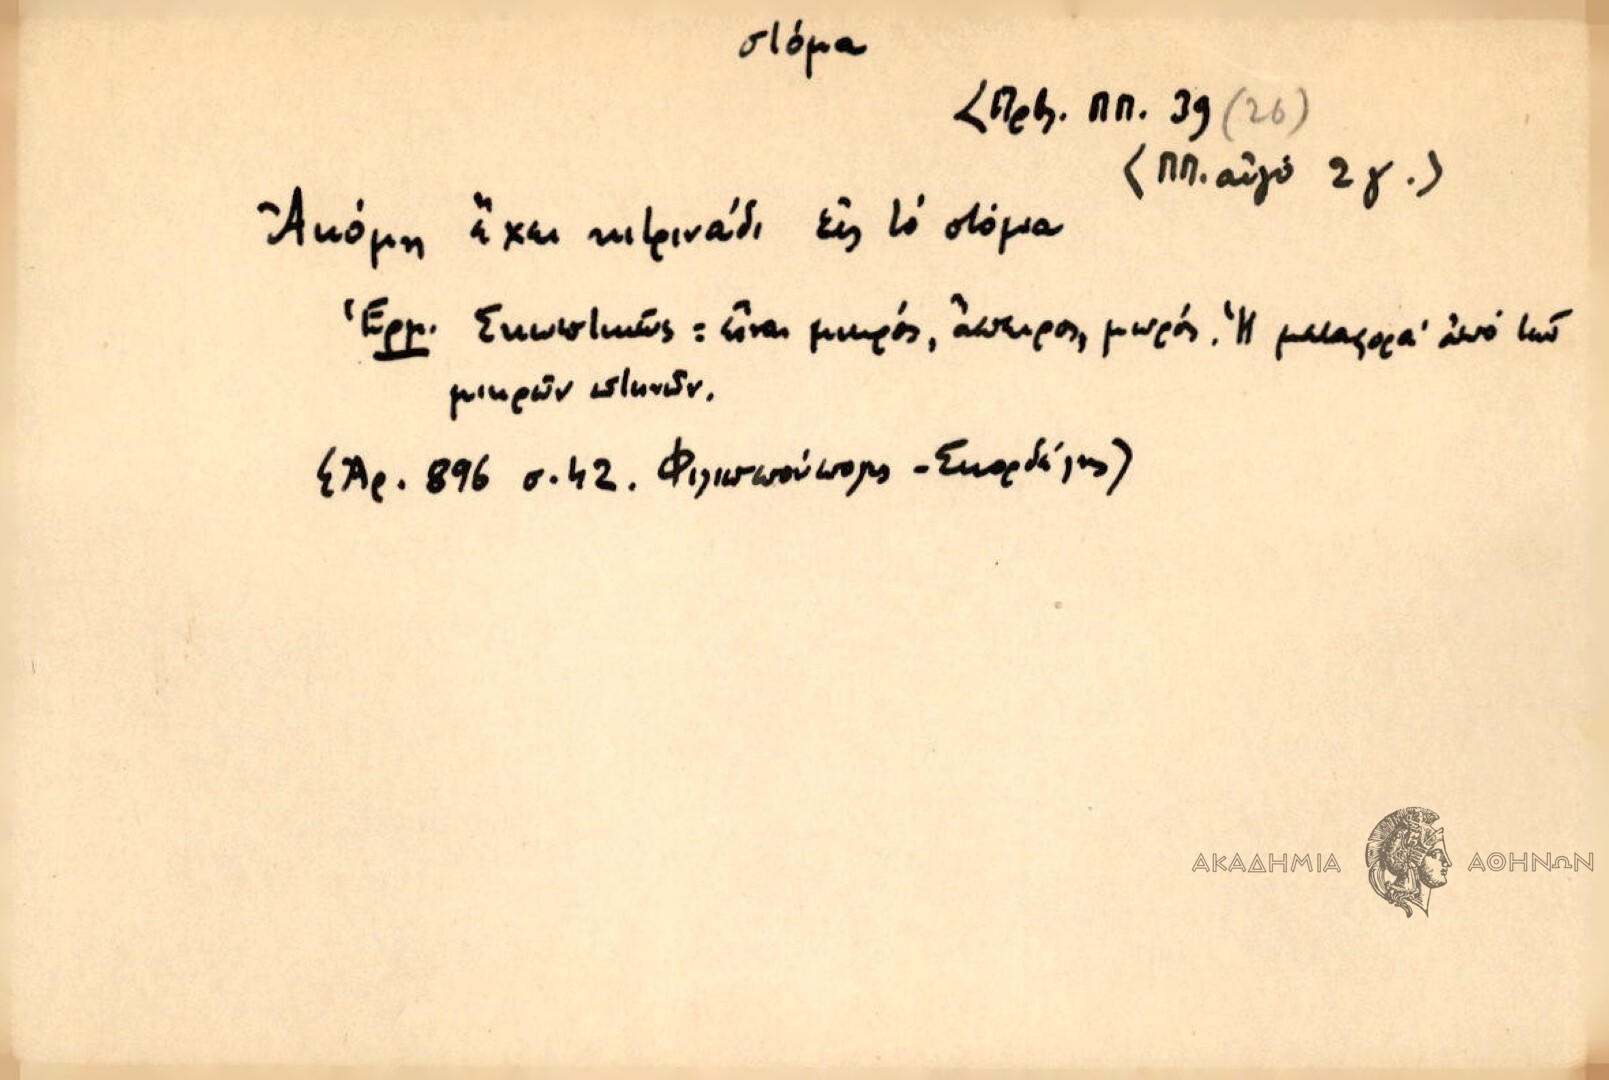 στόμα
<Πρβ. ΠΠ. 39 (26)
<ΠΠ. αὐγό 2γ.>
Ἀκόμη ἔχει κιτρινάδι εἰς τό στόμα
Ἑρμ. Σκωπτικῶς = εἶναι μικρός, ἄπειρος, μωρός. Ἡ μεταφορά ἀπό τῶν
μικρῶν πτηνῶν.
(Ἀρ. 896 σ. 42. Φιλιππούπολις - Σκορδέλης)
ΑΚΑΔΗΜΙΑ ΑΘΗΝΩΝ